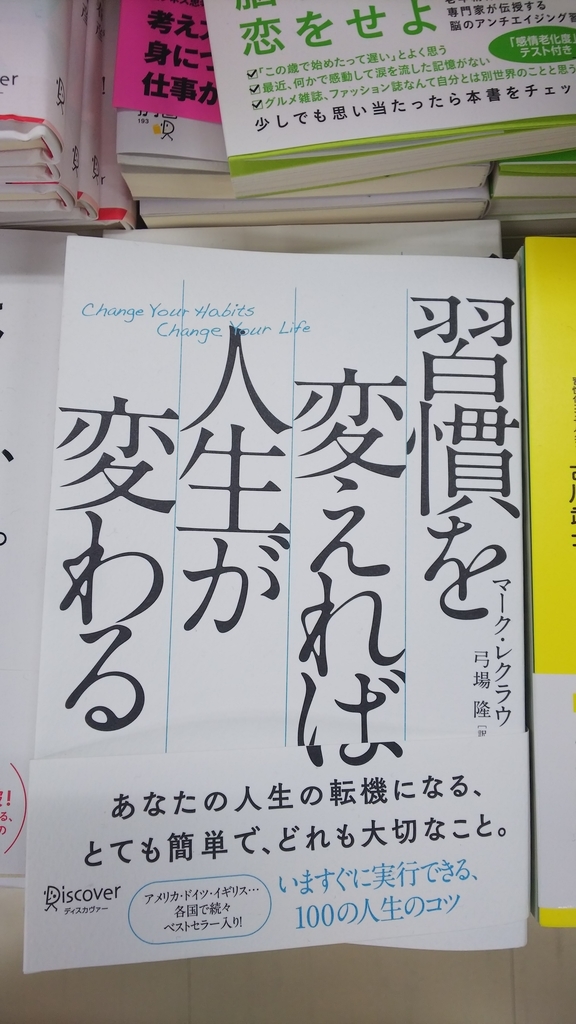 恋をせよ
専門家が伝授する
脳のアンチエイジング
「感情老化度」
テスト付き
「この歳で始めたって遅い」とよく思う
最近、何かで感動して涙を流した記憶がない
グルメ雑誌、ファッション誌なんて自分とは別世界のことと思う
少しでも思い当たったら本書をチェッ
身につ
仕事が
193
Change Your Habits
Change Your Life
習慣を
変えれば
人生が
変わる
マーク・レクラウ
弓場 隆 [訳
あなたの人生の転機になる、
とても簡単で、どれも大切なこと。
Discover
ディスカヴァー
アメリカ・ドイツ・イギリス…
各国で続々
ベストセラー入り!
いますぐに実行できる、
100の人生のコツ